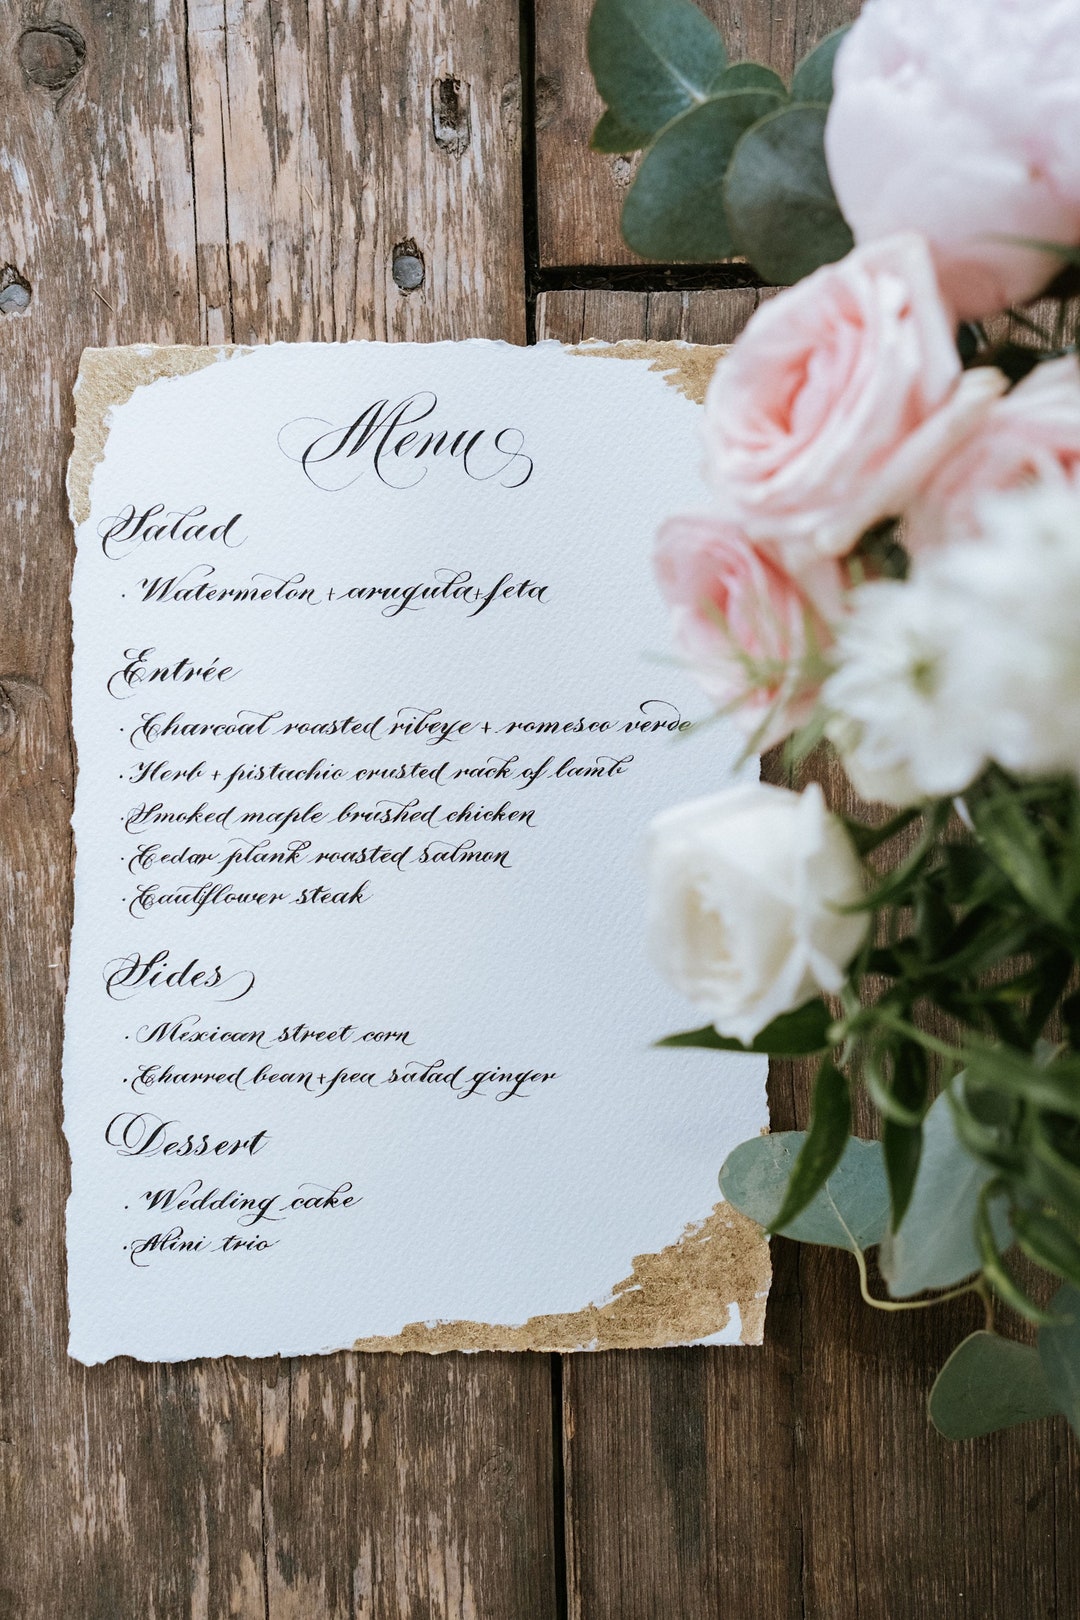 Menu
Salad
· Watermelon + arugula + feta
Entrée
· Charcoal roasted ribeye + romesco verde
· Herb + pistachio crusted rack of lamb
· Smoked maple brushed chicken
· Cedar plank roasted salmon
· Cauliflower steak
Sides
· Mexican street corn
· Charred bean + pea salad ginger
Dessert
· Wedding cake
· Mini trio